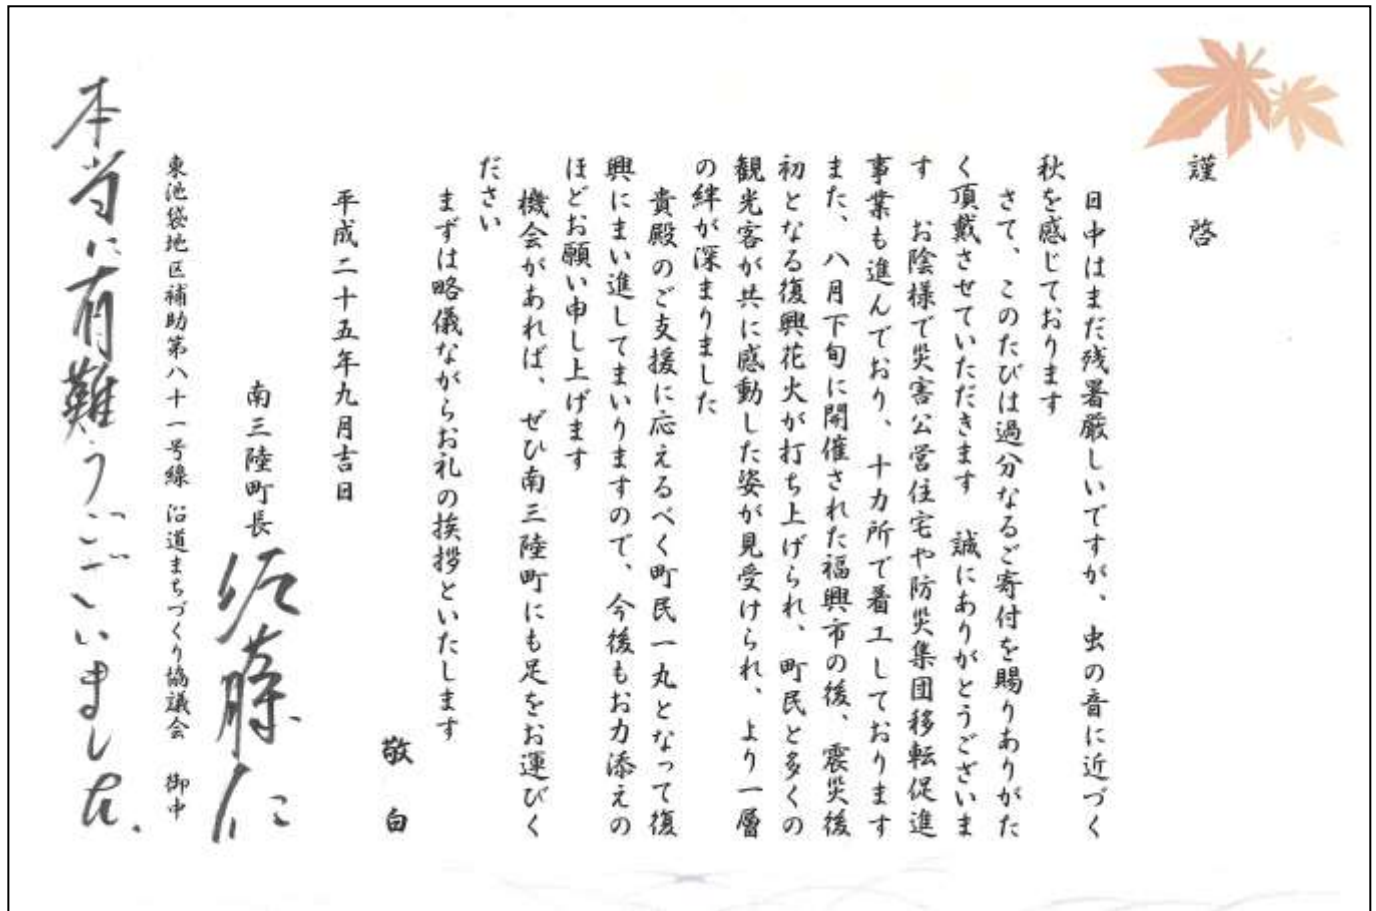 謹啓
日中はまだ残暑厳しいですが、虫の音に近づく
秋を感じております
さて、このたびは過分なるご寄付を賜りありがた
く頂戴させていただきます　誠にありがとうございま
す　お陰様で災害公営住宅や防災集団移転促進
事業も進んでおり、十カ所で着工しております
また、八月下旬に開催された福興市の後、震災後
初となる復興花火が打ち上げられ、町民と多くの
観光客が共に感動した姿が見受けられ、より一層
の絆が深まりました
貴殿のご支援に応えるべく町民一丸となって復
興にまい進してまいりますので、今後もお力添えの
ほどお願い申し上げます
機会があれば、ぜひ南三陸町にも足をお運びく
ださい
まずは略儀ながらお礼の挨拶といたします
敬白
平成二十五年九月吉日
南三陸町長　佐藤仁
東池袋地区補助第八十一号線 沿道まちづくり協議会　御中
本当に有難うございました.